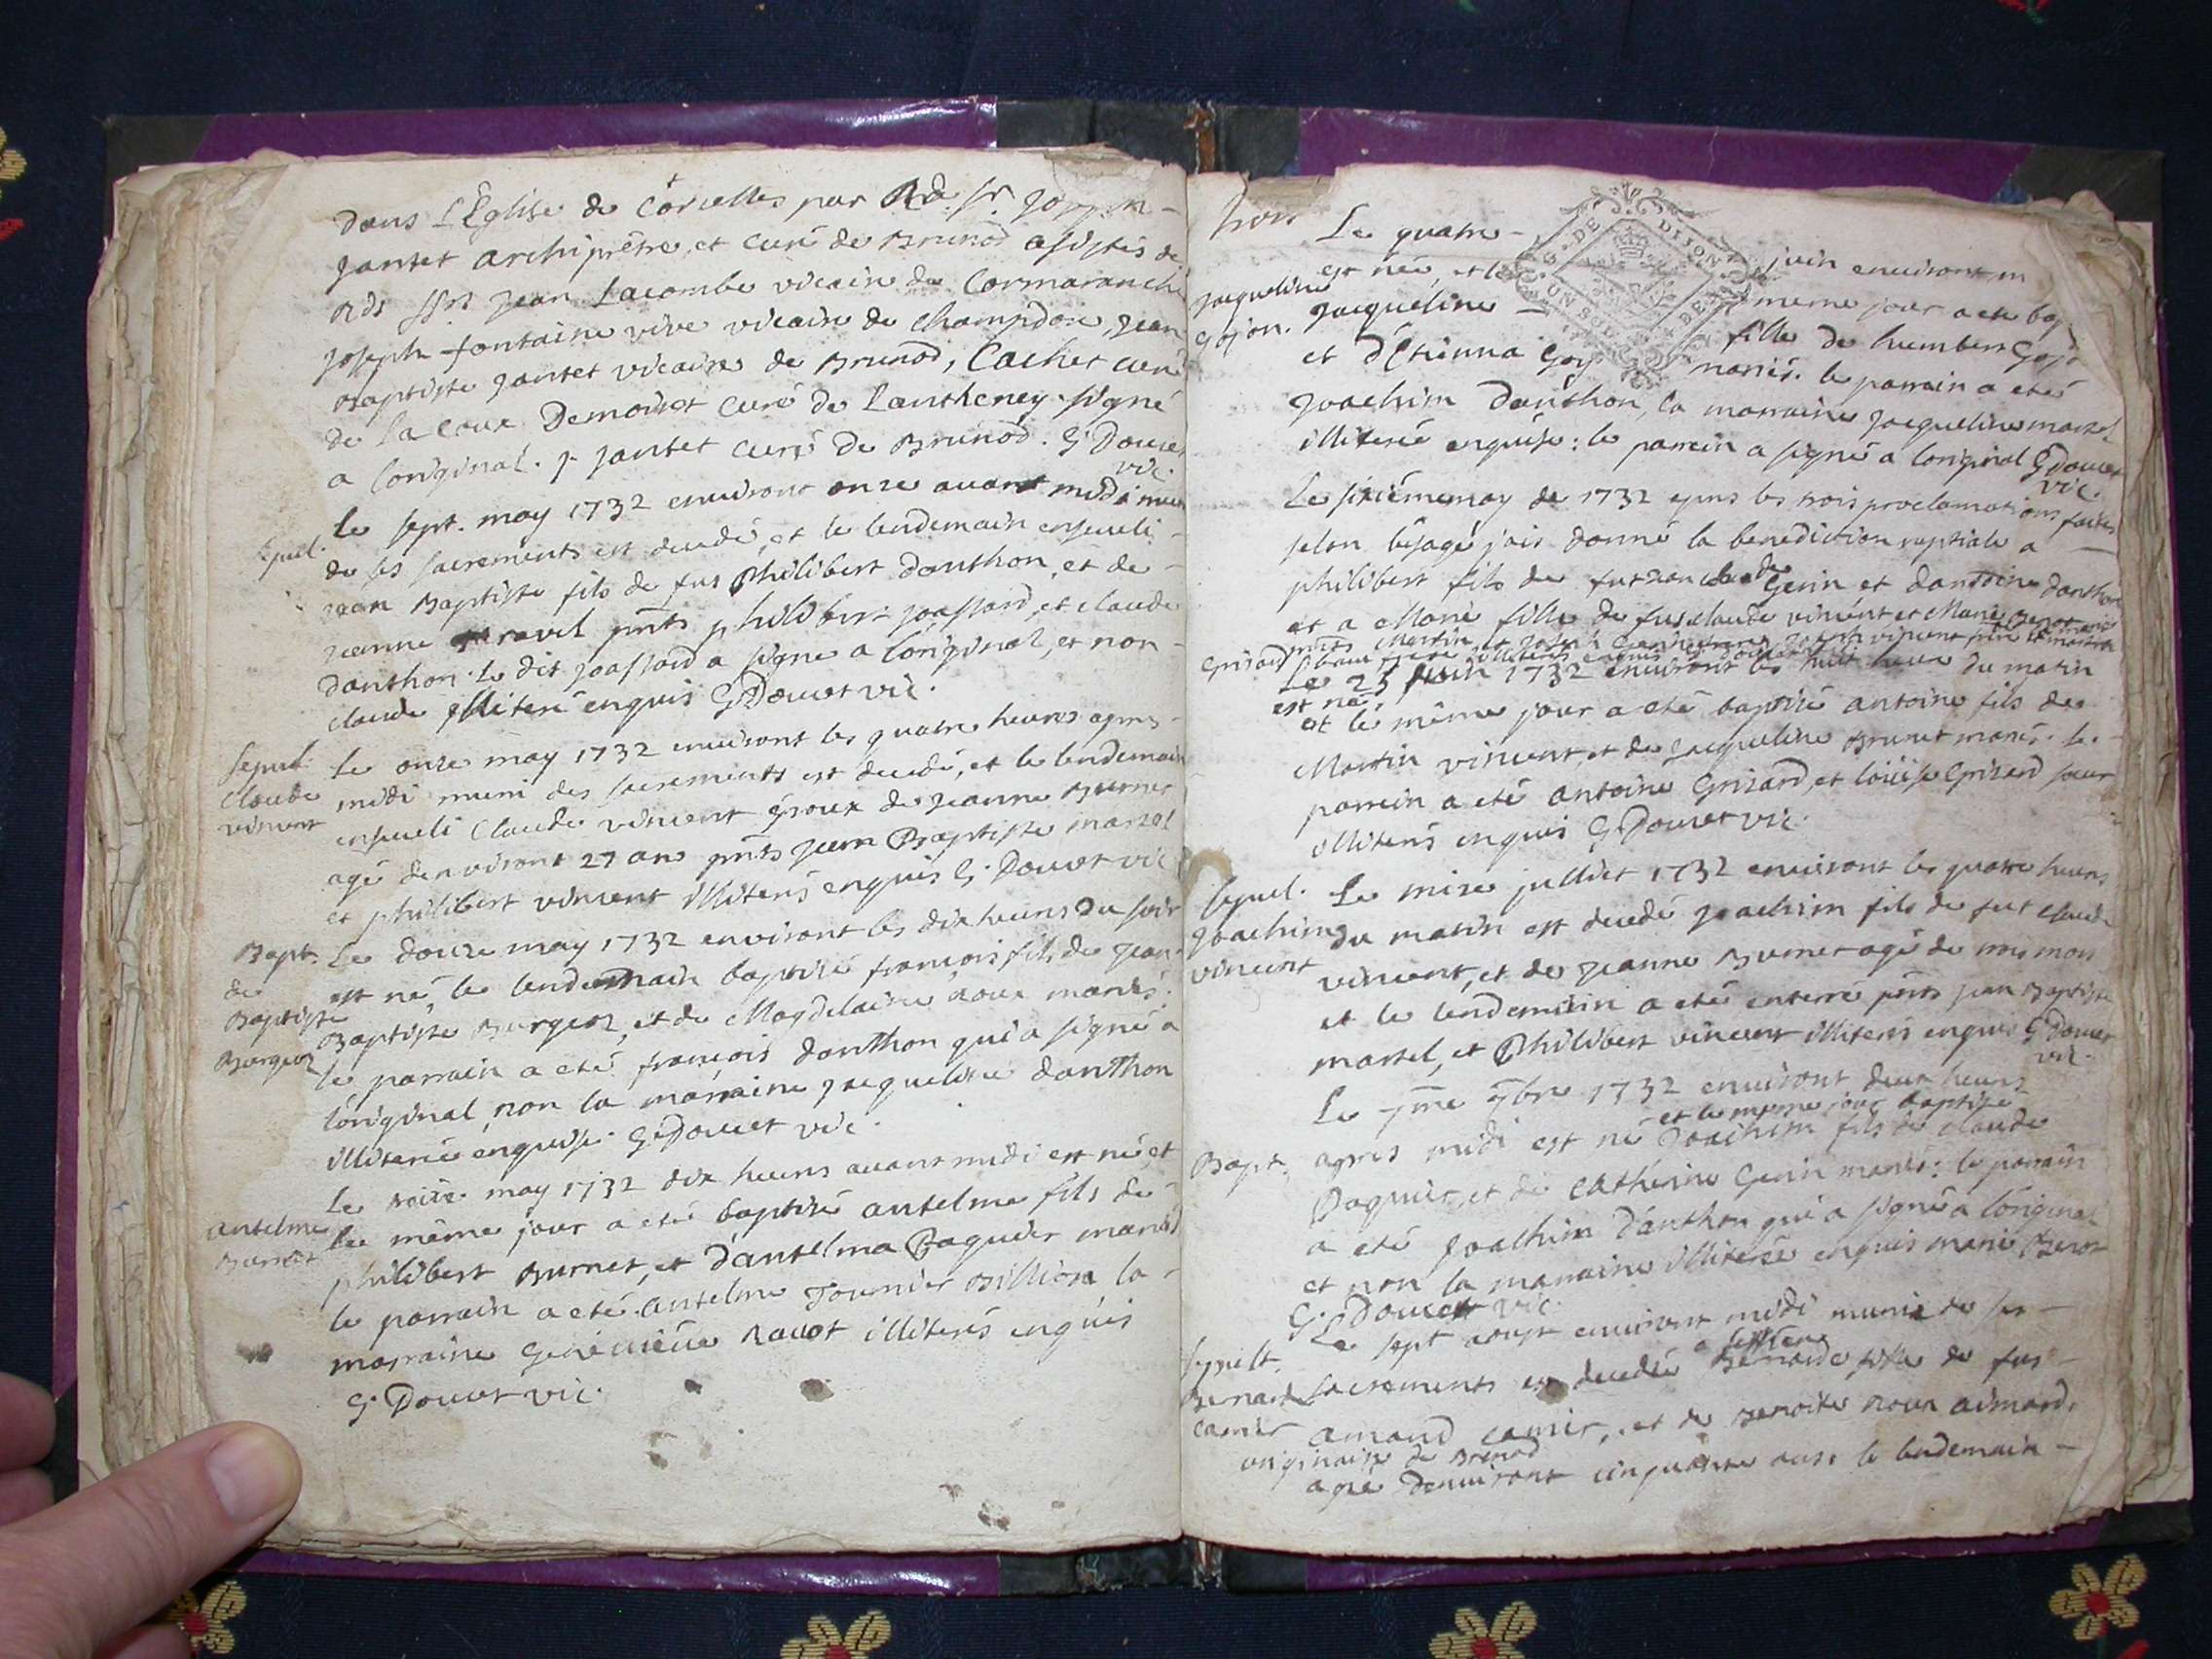 dans L'Eglise de Corcelles par Rd. Sr.
Jantet archiprêtre, et curé de Brunod assistés de
Rds ssrs Jean Lacombe vicaire de Cormaranche
Joseph fontaine vive vicaire de Champdore, Jean
Baptiste Jantet vicaire de Brunod, Cachet curé
de Lacoux Demoiret curé de Lantheney signé
a loriginal. J. Jantet curé de Brunod. G Doucet
vic.
Sepul.
le sept. may 1732 environt onze avant midi muni
de ses sacrements est decedé, et le lendemain enseveli
Jean Baptiste fils de fus Philibert danthon, et de
Jeanne ravel pnts philibert joassard, et claude
danthon. le dit joassard a signe a loriginal, et non
claude illiteré enquis G Doucet vic.
Sepul.
Claude
vincent
le onze may 1732 environt les quatre heures apres
midi muni des sacrements est decedé, et le lendemain
enseveli Claude vincent époux de Jeanne Burnet
agé denviront 27 ans pnts Jean Baptiste martel
et philibert vincent illiterés enquis G. Doucet vic
Bapt.
de
Baptiste
Burgeoz
Le douze may 1732 environt les dix heures du soir
est né, le lendemain baptisé françois fils de Jean
Baptiste Burgeoz, et de Magdelaine roux mariés.
le parrain a eté françois danthon qui a signé a
loriginal, non la marraine Jacqueline danthon
illiterée enquise. G. Doucet vic.
Antelme
Burnet
Le seize may 1732 dix heures avant midi est né, et
le même jour a eté baptisé antelme fils de
philibert Burnet, et d'antelma Paquier mariés
le parrain a eté antelme Tournier Billion la
marraine Genevieve Ravot illiterés enquis
G. Doucet vic.
Jacqueline
Gojon.
Le quatre juin environt
est née, et le meme jour a eté
Jacqueline fille de humbert
et d'Etienna mariés. le parrain a eté
Joachim danthon, la marraine Jacqueline martel
illiterée enquise: le parrain a signé a loriginal G Doucet
vic.
Le sixiéme may de 1732 apres les trois proclamations faites
selon l'usage jais donné la benediction nuptiale a
philibert fils de fut Genin et dantoine danthon
et a Marie fille de fus claude vincent et Marie
Grisard
Le 25 juin 1732 environt les huit heure du matin
est né
et le même jour a eté baptisé antoine fils de
Martin vincent, et de Jacqueline Brunet mariés. le
parrein a eté antoine Grisard, et loüise Grisard
illiterés enquis G. Doucet vic.
Sepul.
Joachim
vincent
Le juilliet 1732 environt les quatre heures
du matin est decedé joachim fils de fut claude
vincent, et de Jeanne Burnet agé de
et le lendemain a eté enterré pnts jean Baptiste
martel, et Philibert vincent illiterés enquis G Doucet
vic.
Bapt.
Le 7me 7bre 1732 environt deux heures
et le meme jour baptisé
apres midi est né Joachim fils de claude
Paquier, et de Catherine Genin mariés: le parrain
a eté Joachim d'anthon qui a signé a loriginal
et non la marraine illiterée enquis marie
G. Doucet vic.
Sepult.
Bernarde
Carrier
Le sept aoust environt midi munie de ses
sacrements est decedée Bernarde fille de fus
amand et de Benoite roux
originaire de Brenod
agé denviront cinquante ans: le lendemain